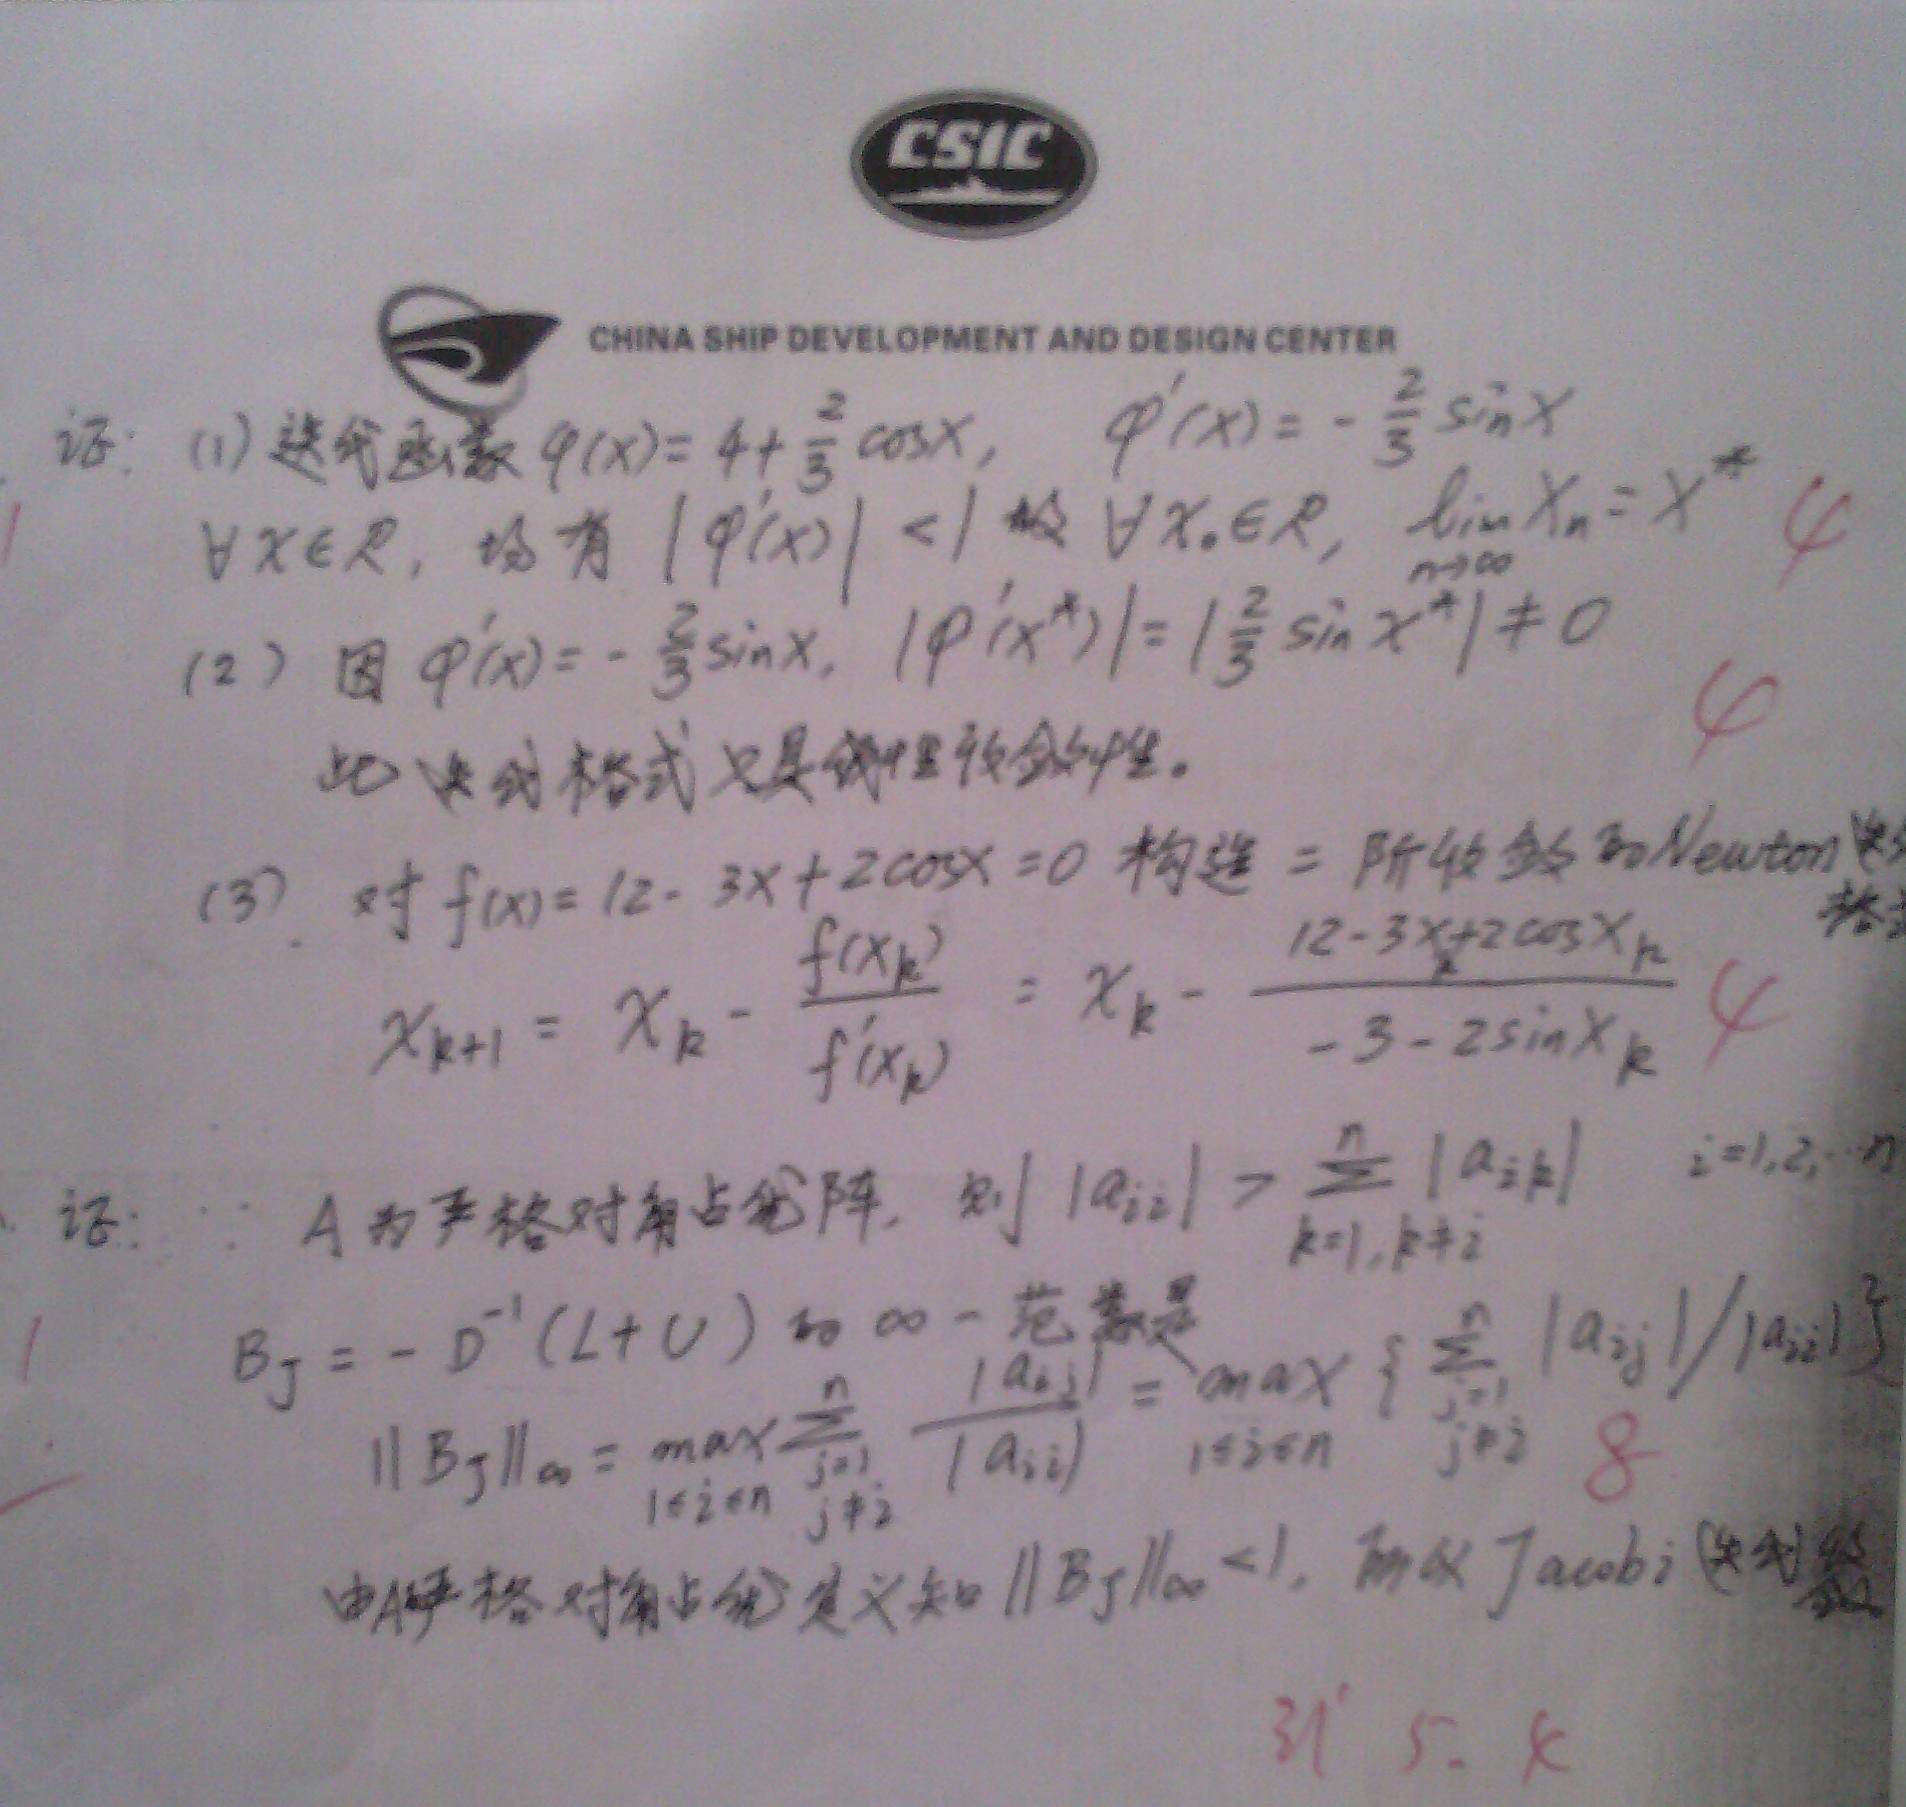 CSIC
CHINA SHIP DEVELOPMENT AND DESIGN CENTER
证: (1) 迭代函数 φ(x)=4+2/3 cosx, φ′(x)=-2/3 sinx
∀x∈R, 均有 |φ′(x)|<1 故 ∀x₀∈R, lim n→∞ xₙ=x* 4
(2) 因 φ′(x)=-2/3 sinx, |φ′(x*)|=|2/3 sin x*|≠0
4
此迭代格式只具线性收敛性。
(3). 对 f(x)=12-3x+2cosx=0 构造二阶收敛的Newton迭代
格式
x_{k+1}=x_k-f(x_k)/f′(x_k)=x_k-(12-3x_k+2cosx_k)/(-3-2sinx_k) 4
证: ∵ A为严格对角占优阵, 则 |a_{ii}|>∑_{k=1,k≠i}^{n}|a_{ik}| i=1,2,…n
B_J=-D⁻¹(L+U) 的 ∞-范数是
‖B_J‖_∞=max_{1≤i≤n} ∑_{j=1, j≠i}^{n} |a_{ij}|/|a_{ii}|=max_{1≤i≤n}{∑_{j=1, j≠i}^{n}|a_{ij}|/|a_{ii}|}
8
由A严格对角占优定义知‖B_J‖_∞<1, 所以Jacobi迭代收敛